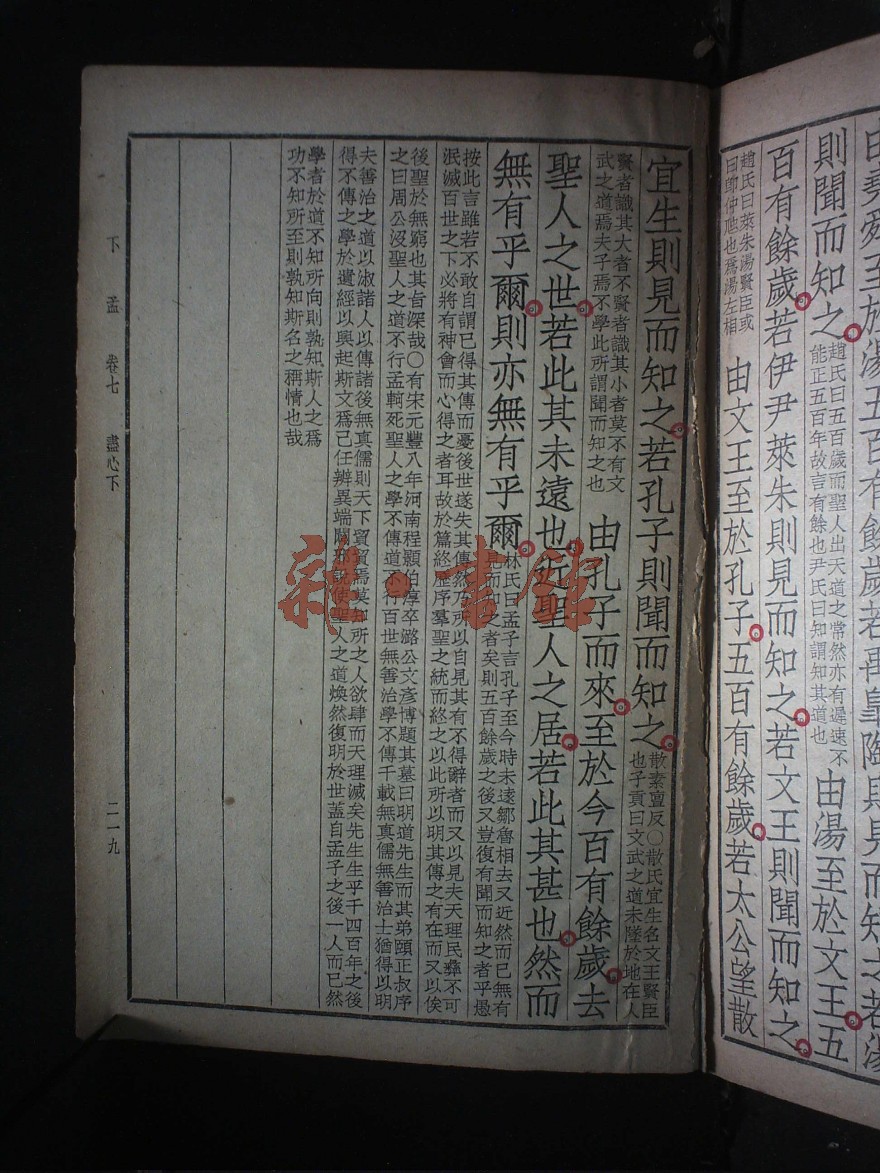 由堯舜至於湯五百有餘歲若禹皐陶則見而知之若湯
則聞而知之
趙氏曰五百歲而聖人出天道之常然亦有遲速不
能正五百年故言有餘也尹氏曰知謂知其道也
由湯至於文王五
百有餘歲若伊尹萊朱則見而知之若文王則聞而知之
趙氏曰萊朱湯賢臣或
曰卽仲虺也爲湯左相
由文王至於孔子五百有餘歲若太公望散
宜生則見而知之若孔子則聞而知之
散素亶反○散氏宜生名文王賢臣
也子貢曰文武之道未墜於地在人
賢者識其大者不賢者識其小者莫不有文
武之道焉夫子焉不學此所謂聞而知之也
由孔子而來至於今百有餘歲去
聖人之世若此其未遠也近聖人之居若此其甚也然而
無有乎爾則亦無有乎爾
林氏曰孟子言孔子至今時未遠鄒魯相去又近然而已無有
見而知之者矣則五百餘歲之後又豈復有聞而知之者乎愚
按此言雖若不敢自謂已得其傳而憂後世遂失其傳然乃所以自見其有不得辭者而又以見夫天理民彝不可
泯滅百世之下必將有神會而心得之者耳故於篇終歷序羣聖之統而終之以此所以明其傳之有在而又以俟
後聖於無窮也其旨深哉○有宋元豐八年河南程顥伯淳卒潞公文彥博題其墓曰明道先生而其弟頤正叔序
之曰周公沒聖人之道不行孟軻死聖人之學不傳道不行百世無善治學不傳千載無眞儒無善治士猶得以明
夫善治之道以淑諸人以傳諸後無眞儒則天下貿貿焉莫知所之人欲肆而天理滅矣先生生乎千四百年之後
得不傳之學於遺經以興起斯文爲己任辨異端闢邪說使聖人之道煥然復明於世蓋自孟子之後一人而已然
學者於道不知所向則孰知斯人之爲
功不知所至則孰知斯名之稱情也哉
下孟 卷七 盡心下
二一九
雜·書館